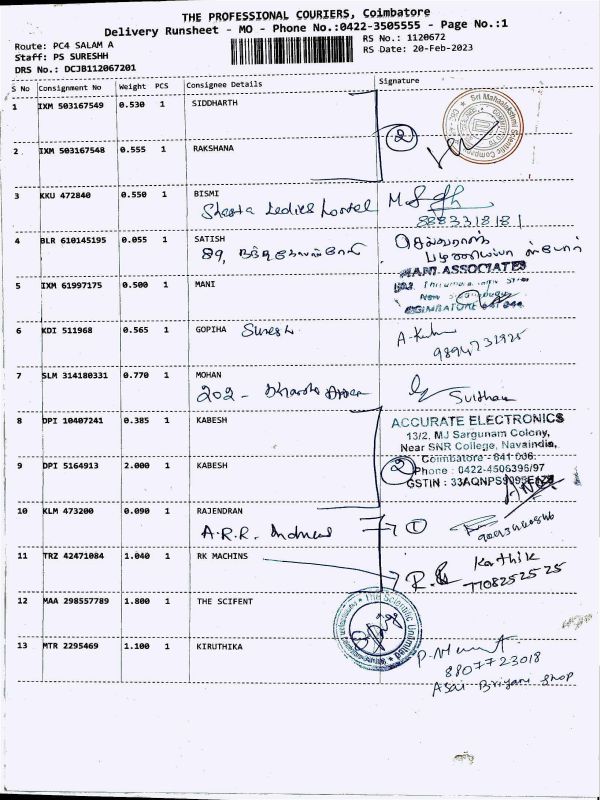 THE PROFESSIONAL COURIERS, Coimbatore
Delivery Runsheet - MO - Phone No.:0422-3505555 - Page No.:1
Route: PC4 SALAM A
RS No.: 1120672
Staff: PS SURESHH
RS Date: 20-Feb-2023
DRS No.: DCJB112067201
S No Consignment No Weight PCS Consignee Details Signature
1 IXM 503167549 0.530 1 SIDDHARTH
2
2 IXM 503167548 0.555 1 RAKSHANA
3 KKU 472840 0.550 1 BISMI
Ladies hostel
8883318181
4 BLR 610145195 0.055 1 SATISH
89,
MANI ASSOCIATES
5 IXM 61997175 0.500 1 MANI
COIMBATORE
6 KDI 511968 0.565 1 GOPIHA Suresh
9894731925
7 SLM 314180331 0.770 1 MOHAN
202 -
8 DPI 10407241 0.385 1 KABESH
ACCURATE ELECTRONICS
13/2, MJ Sargunam Colony,
Near SNR College, Navaindia,
Coimbatore - 641 006.
9 DPI 5164913 2.000 1 KABESH
2
Phone : 0422-4506396/97
10 KLM 473200 0.090 1 RAJENDRAN
A.R.R.
1
11 TRZ 42471084 1.040 1 RK MACHINS
Karthik
7708252525
12 MAA 298557789 1.800 1 THE SCIFENT
The Scientific Unlimited
13 MTR 2295469 1.100 1 KIRUTHIKA
8807723018
Asai Briyani shop